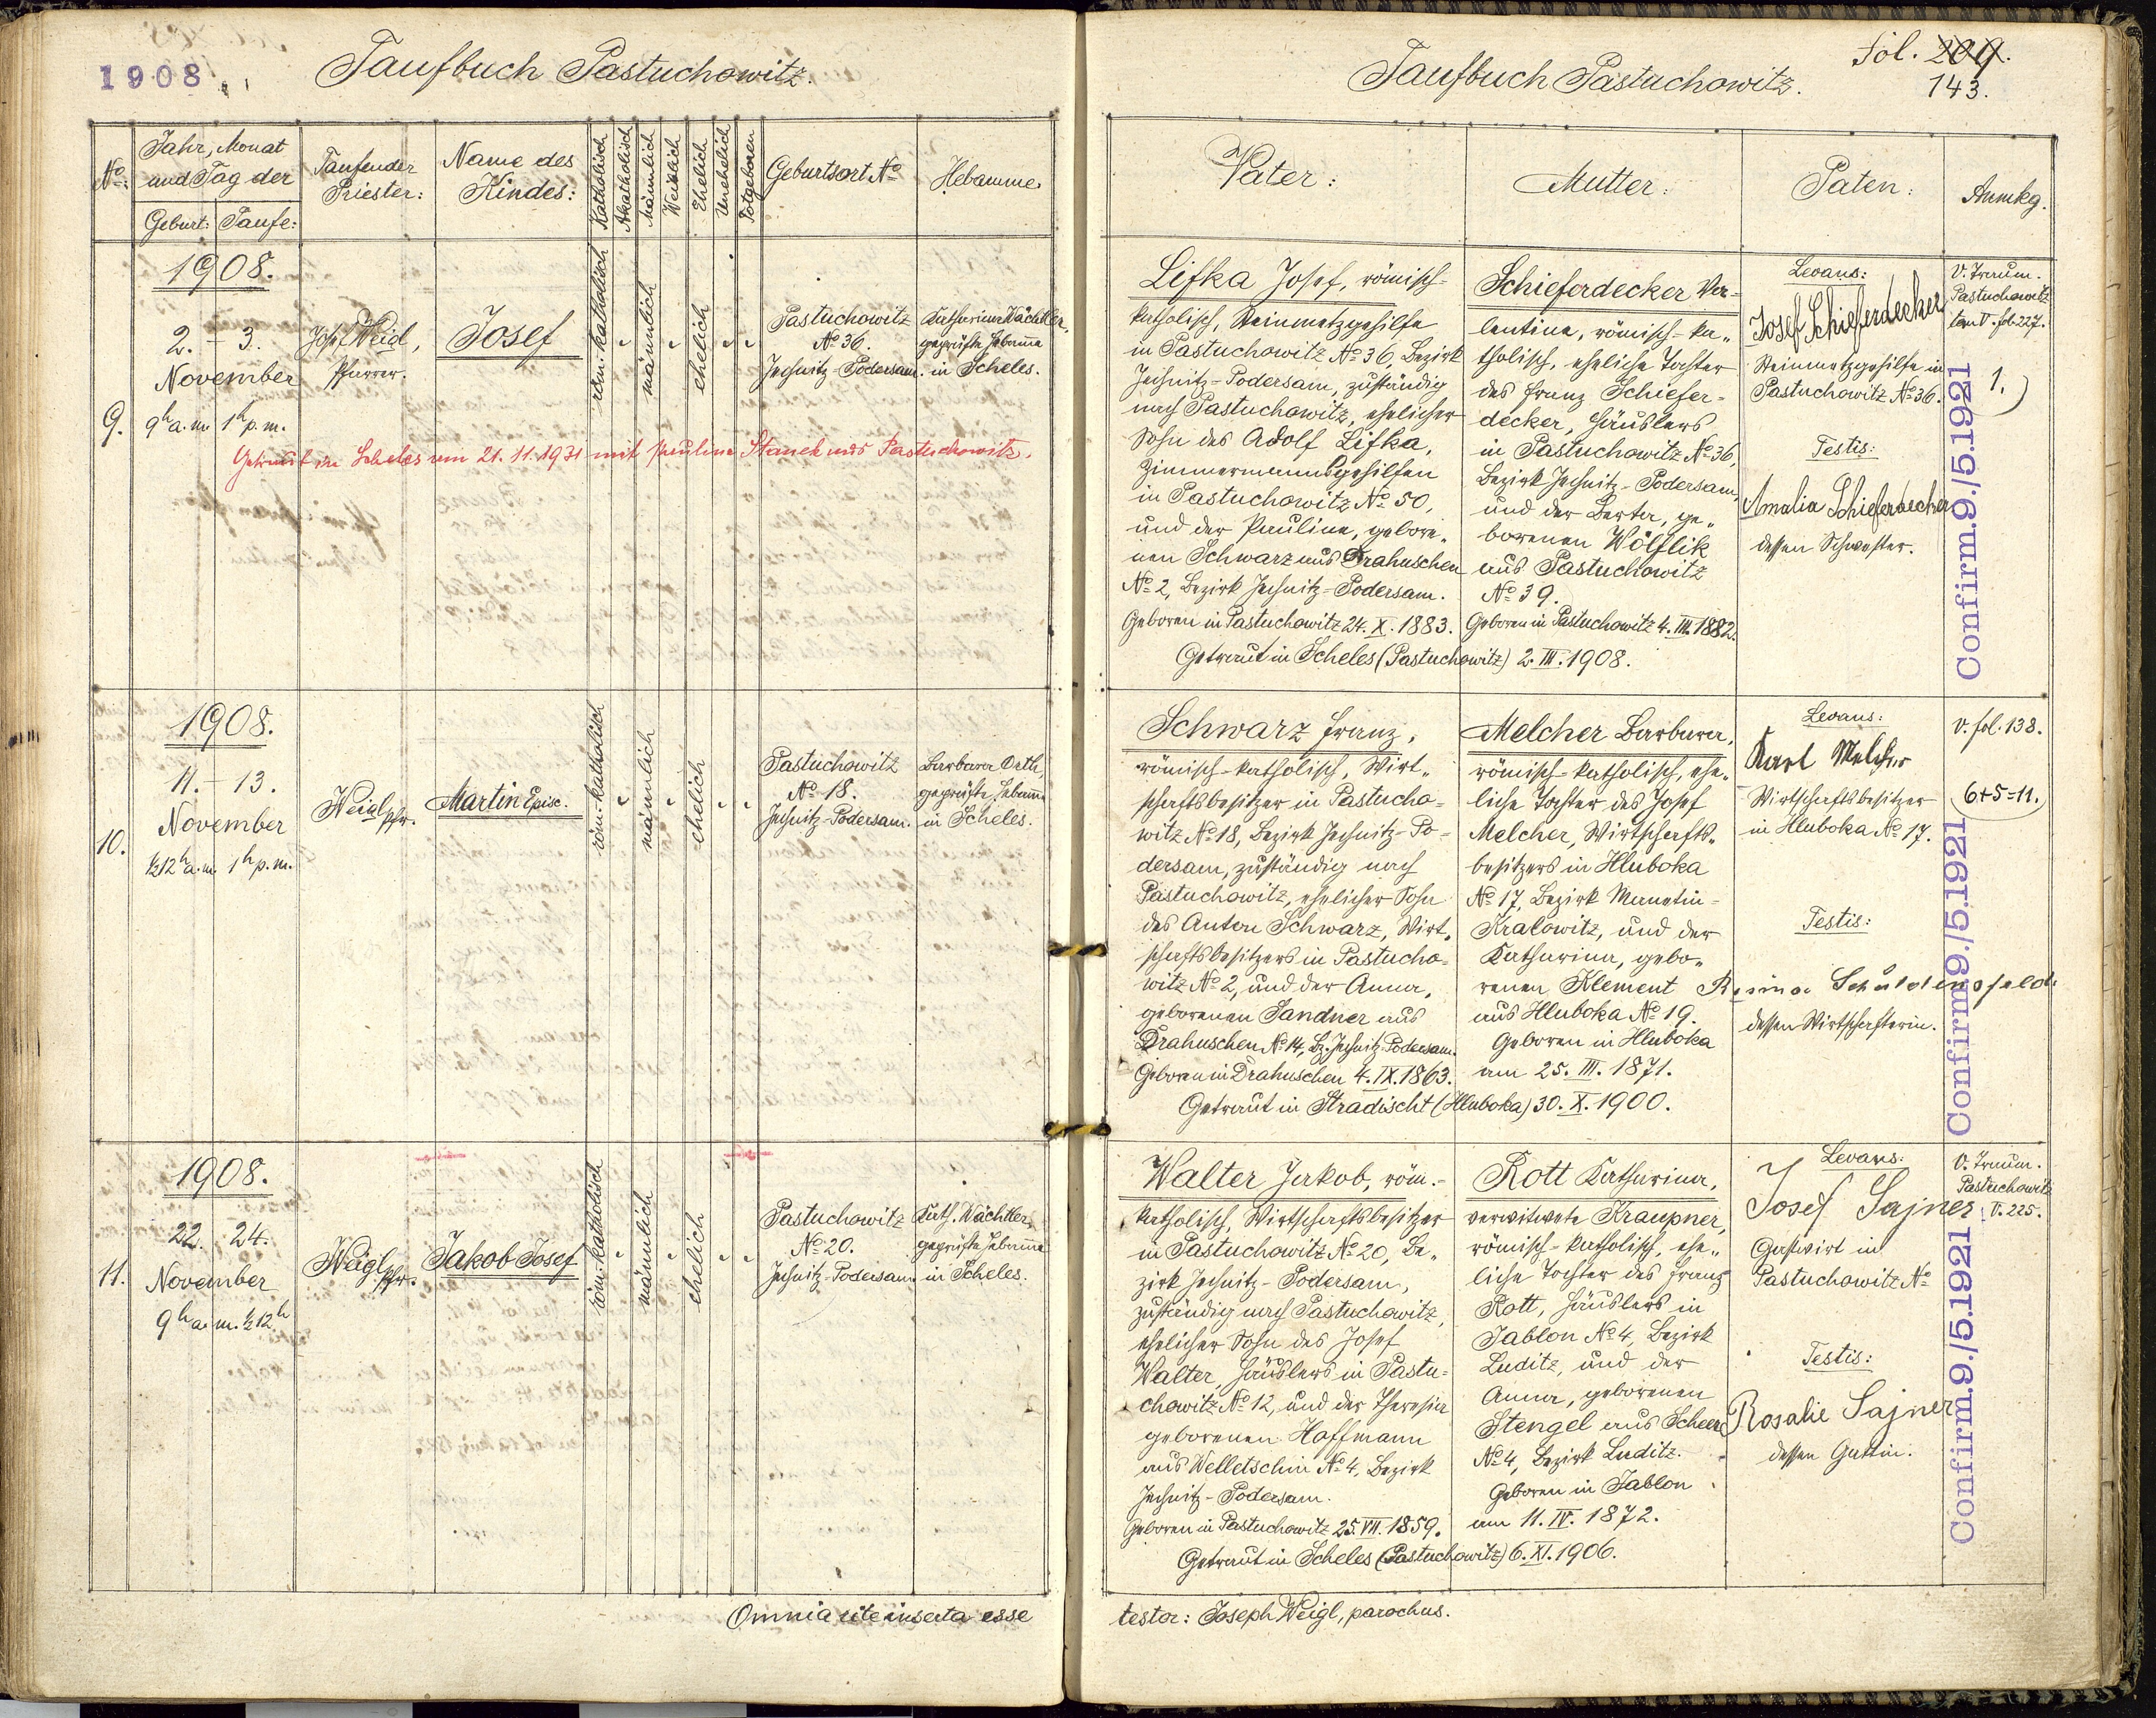 1908.
Taufbuch Pastuchowitz.
No:
Jahr, Monat
und Tag der
Geburt:
Taufe:
Taufender
Priester:
Name des
Kindes:
Katholisch
Akatholisch
Männlich
Weiblich
Ehelich
Unehelich
Totgeboren
Geburtsort No
Hebamme
9.
1908.
2. - 3.
November
9h a.m. 1h p.m.
Josef Weigl,
Pfarrer.
Josef
röm.-katholisch
männlich
ehelich
Pastuchowitz
No 36.
Jechnitz-Podersam.
Katharina Wächtler,
geprüfte Hebamme
in Scheles.
Getraut in Scheles am 21.11.1931 mit Paulina Stanek aus Pastuchowitz.
10.
1908.
11. - 13.
November
½12h a.m. 1h p.m.
Weigl, Pfr.
Martin Episc.
röm.-katholisch
männlich
ehelich
Pastuchowitz
No 18.
Jechnitz-Podersam.
Barbara Orth,
geprüfte Hebamme
in Scheles.
11.
1908.
22. 24.
November
9h a.m. ½12h
Weigl, Pfr.
Jakob Josef
röm.-katholisch
männlich
ehelich
Pastuchowitz
No 20.
Jechnitz-Podersam
Kath. Wächtler,
geprüfte Hebamme
in Scheles.
Omnia rite inserta esse
Taufbuch Pastuchowitz.
Fol. 209.
143.
Vater:
Mutter:
Paten:
Anmkg.
Lifka Josef, römisch-
katholisch, Steinmetzgehilfe
in Pastuchowitz No 36, Bezirk
Jechnitz-Podersam, zuständig
nach Pastuchowitz, ehelicher
Sohn des Adolf Lifka,
Zimmermannsgehilfen
in Pastuchowitz No 50,
und der Paulina, gebore„
nen Schwarz aus Drahuschen
No 2, Bezirk Jechnitz-Podersam.
Geboren in Pastuchowitz 24. X. 1883.
Schieferdecker Va-
lentina, römisch-ka„
tholisch, eheliche Tochter
des Franz Schiefer-
decker, Häuslers
in Pastuchowitz No 36,
Bezirk Jechnitz-Podersam,
und der Berta, ge„
borenen Wölflik
aus Pastuchowitz
No 39.
Geboren in Pastuchowitz 4. III. 1882.
Getraut in Scheles (Pastuchowitz) 2. III. 1908.
Levans:
Josef Schieferdecker
Steinmetzgehilfe in
Pastuchowitz No 36.
Testis:
Amalia Schieferdecker
dessen Schwester.
V. Trauum.
Pastuchowitz
tom V. fol. 227.
1.)
Confirm. 9./5.1921
Schwarz Franz,
römisch-katholisch, Wirt„
schaftsbesitzer in Pastucho=
witz No 18, Bezirk Jechnitz-Po=
dersam, zuständig nach
Pastuchowitz, ehelicher Sohn
des Anton Schwarz, Wirt„
schaftsbesitzers in Pastucho=
witz No 2, und der Anna,
geborenen Sandner aus
Drahuschen No 14, Bz. Jechnitz-Podersam.
Geboren in Drahuschen 4. IX. 1863.
Melcher Barbara,
römisch-katholisch, ehe„
liche Tochter des Josef
Melcher, Wirtschafts„
besitzers in Hluboka
No 17, Bezirk Manetin-
Kralowitz, und der
Katharina, gebo„
renen Klement
aus Hluboka No 19.
Geboren in Hluboka
am 25. III. 1871.
Getraut in Stradischt (Hluboka) 30. X. 1900.
Levans:
Karl Melcher
Wirtschaftsbesitzer
in Hluboka No 17.
Testis:
dessen Wirtschafterin.
V. fol. 138.
6+5=11.
Confirm 9./5.1921
Walter Jakob, röm.-
katholisch, Wirtschaftsbesitzer
in Pastuchowitz No 20, Be„
zirk Jechnitz-Podersam,
zuständig nach Pastuchowitz,
ehelicher Sohn des Josef
Walter, Häuslers in Pastu=
chowitz No 12, und der Theresia
geborenen Hoffmann
aus Welletschin No 4, Bezirk
Jechnitz-Podersam.
Geboren in Pastuchowitz 25. VII. 1859.
Rott Katharina,
verwitwete Kraupner,
römisch-katholisch, ehe„
liche Tochter des Franz
Rott, Häuslers in
Jablon No 4, Bezirk
Luditz, und der
Anna, geborenen
Stengel aus Scheer
No 4, Bezirk Luditz.
Geboren in Jablon
am 11. IV. 1872.
Getraut in Scheles (Pastuchowitz) 6. XI. 1906.
Levans:
Josef Sajner
Gastwirt in
Pastuchowitz No
Testis:
Rosalie Sajner
dessen Gattin.
V. Trauum.
Pastuchowitz
V. 225.
Confirm. 9./5.1921
testor: Joseph Weigl, parochus.